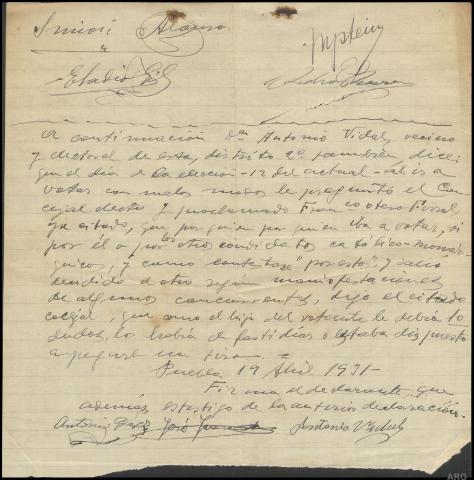 Alonso
Eladio Gil
A continuación Dn Antonio Vidal, vecino
y electoral de esta, distrito 2º también, dice:
que el día de la elección -12 del actual- al ir a
votar con malos modos le preguntó el Con-
cejal electo y proclamado Francisco Otero
ya citado, que por quien iba a votar, si
por él o por los otros candidatos católico-monár-
quicos, y como contestase "por estos", y salió
de otro según manifestaciones
de algunos concurrentes, dijo el citado
que como el hijo del votante le debía 10
duros, los había de o estaba dispuesto
a pegarle un tiro. =
Puebla 19 Abril 1931-
Firma el declarante, que
además es testigo de la anterior declaración.
Antonio José Antonio Vidal
ARG